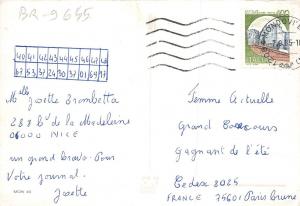 BR-9655
40 41 42 43 44 45 46 47 48
67 53 37 24 30 37 01 69 97
Melle Josette Trombetta
288 bd de la Madeleine
06000 NICE
un grand bravo Pour
Votre journal.
Josette
MON 45
Femme Actuelle
Grand Concours
Gagnant de l'été
Cedex 2025
FRANCE 75601 Paris brune